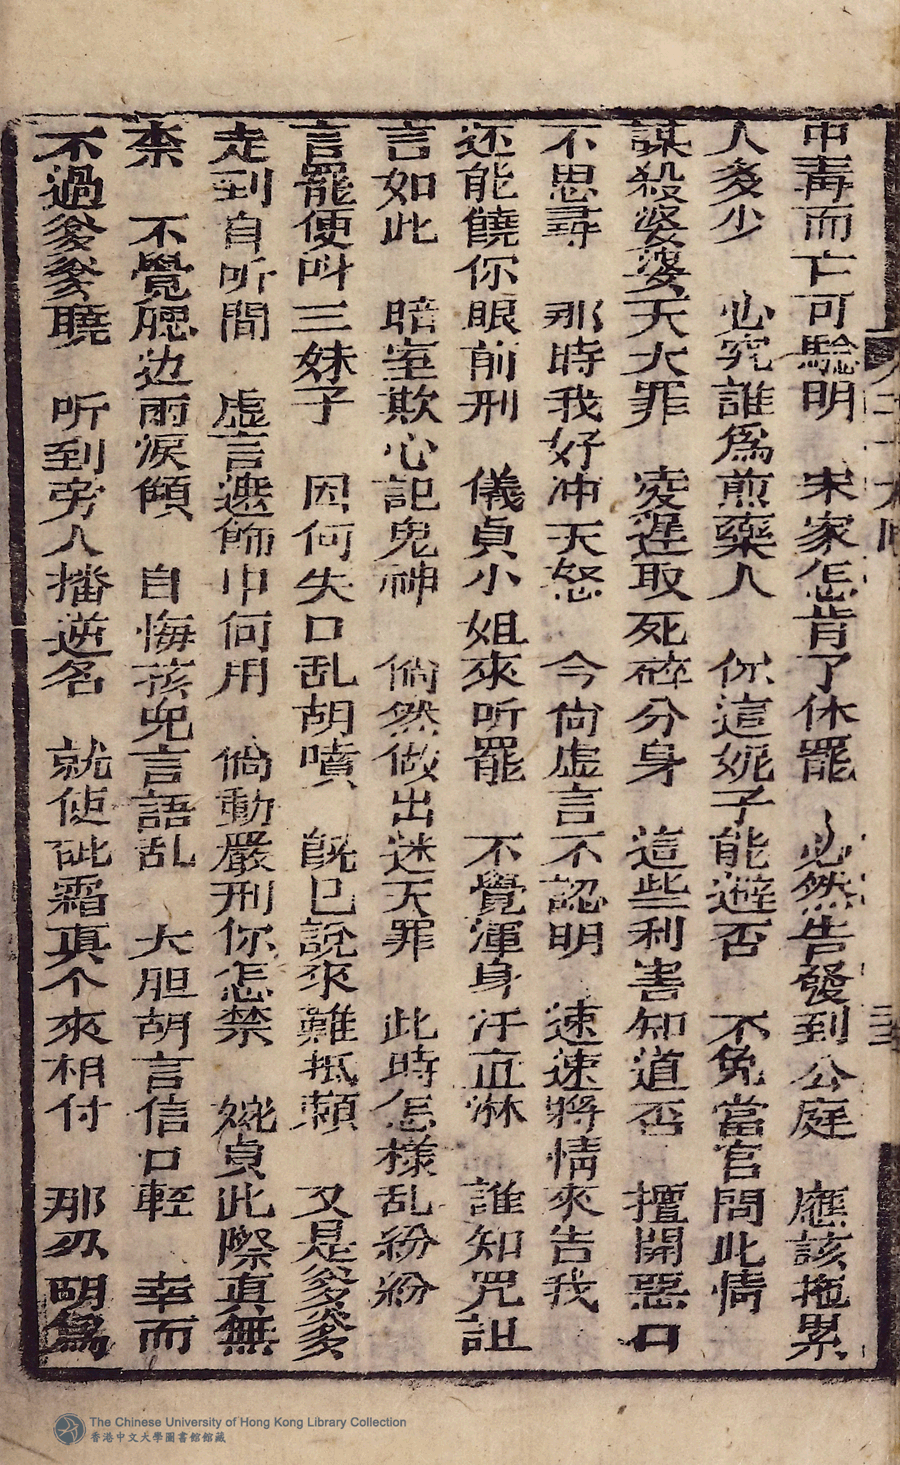 中毒而亡可騐明　宋家怎肯了休罷　必然告發到公庭　應該拖累
人多少　必究誰爲煎藥人　你這妮子能避否　不免當官問此情
謀殺婆婆天大罪　凌遲取死碎分身　這些利害知道否　擅開惡口
不思尋　那時我好冲天怒　今尙虛言不認明　速速將情來告我
还能饒你眼前刑　儀貞小姐來听罷　不覺渾身汗直淋　誰知咒詛
言如此　暗室欺心記鬼神　倘然做出迷天罪　此時怎樣乱紛紛
言罷便叫三妹子　因何失口乱胡噴　旣已說來難抵頼　又是爹爹
走到自听間　虛言遮飾中何用　倘動嚴刑你怎禁　婉貞此際直無
柰　不覺腮边雨淚傾　自悔孩皃言語乱　大胆胡言信口輕　幸而
不過爹爹曉　听到旁人播逆名　就使砒霜真个來相付　那从胡爲
The Chinese University of Hong Kong Library Collection
香港中文大學圖書館館藏